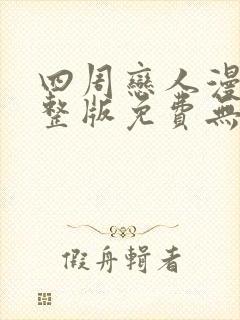 四周戀人漫
整版免費無
假舟輯者